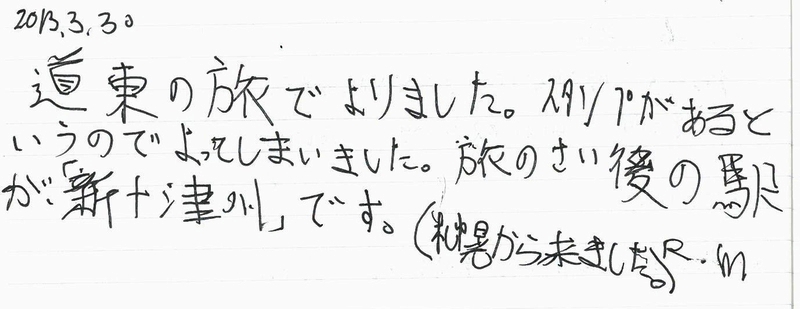 2013.3.30
道東の旅でよりました。スタンプがあると
いうのでよってしまいました。旅のさい後の駅
が「新十津川」です。(札幌から来ました。)R.m